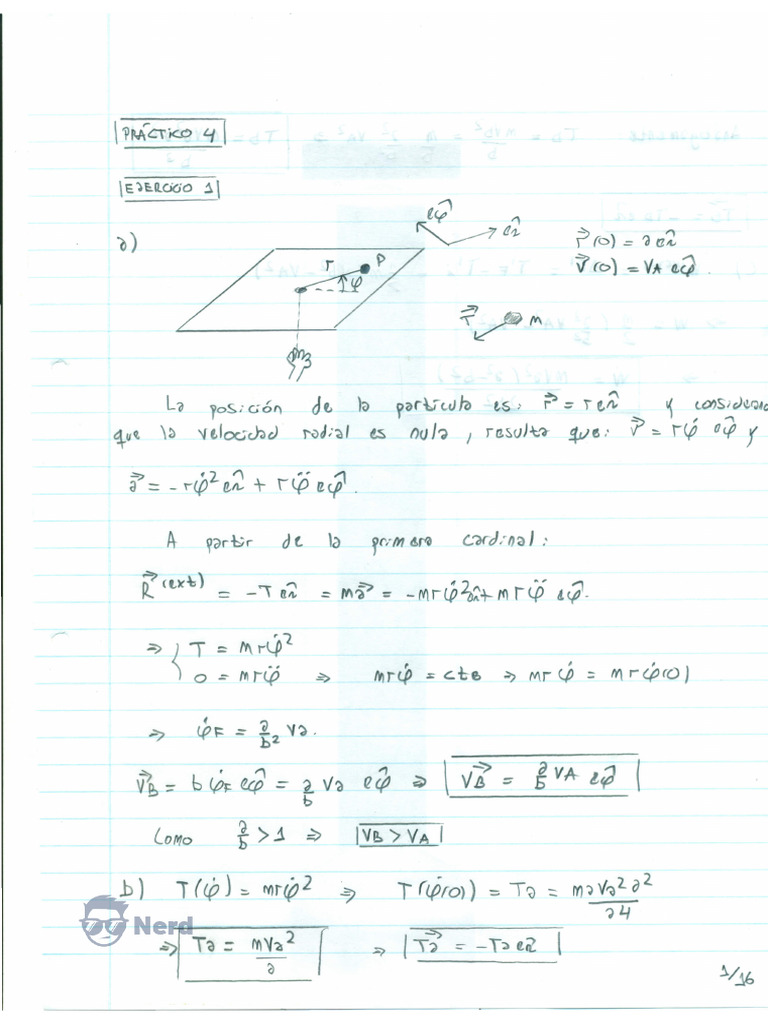 PRÁCTICO 4
EJERCICIO 1
a)
eφ̂
er̂
r
P
φ
r⃗(0) = a er̂
v⃗(0) = VA eφ̂.
T⃗
m
La posición de la partícula es: r⃗ = r er̂ y considerando
que la velocidad radial es nula, resulta que: v⃗ = rφ̇ eφ̂ y
a⃗ = -rφ̇² er̂ + rφ̈ eφ̂.
A partir de la primera cardinal:
R⃗^(ext) = -T er̂ = ma⃗ = -mrφ̇² er̂ + mrφ̈ eφ̂.
⇒ { T = mrφ̇²
0 = mrφ̈ ⇒ mrφ̇ = cte ⇒ mrφ̇ = mrφ̇(0)
⇒ φ̇F = a/b² Va.
V⃗B = b φ̇F eφ̂ = a/b Va eφ̂ ⇒ V⃗B = a/b VA eφ̂
Como a/b > 1 ⇒ VB > VA
b) T(φ̇) = mrφ̇² ⇒ T(φ̇(0)) = Ta = maVa²a²/a4
Nerd
⇒ Ta = mVa²/a ⇒ T⃗a = -Ta er̂
1/16